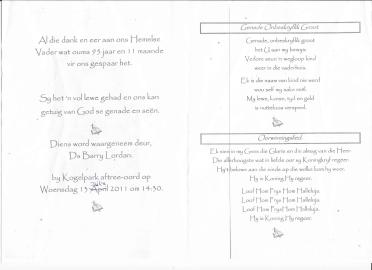 Al die dank en eer aan ons Hemelse
Vader wat ouma 95 jaar en 11 maande
vir ons gespaar het.
Sy het 'n vol lewe gehad en ons kan
getuig van God se genade en seën.
Diens word waargeneem deur,
Ds Barry Lordan.
by Kogelpark aftree-oord op
Julie
Woensdag 13 April 2011 om 14:30.
Genade Onbeskryflik Groot
Genade, onbeskryflik groot
het U aan my bewys.
Verlore seun 'n wegloop kind
weer in die vaderhuis.
Ek is die naam van kind nie werd
wou self my sake reël.
My lewe, kanse, tyd en geld
is nutteloos verspeel.
Oorwinningslied
Ek sien in my Gees die Glorie en die aksag van die Heer
Die allerhoogste wat in liefde oor sy Koningkryk regeer.
Hy't bekom aan die sonde op die welke kom hy weer.
Hy is Koning Hy regeer.
Loof Hom Prys Hom Halleluja.
Loof Hom Prys Hom Halleluja.
Loof Hom Prys Hom Halleluja.
Hy is Koning Hy regeer.